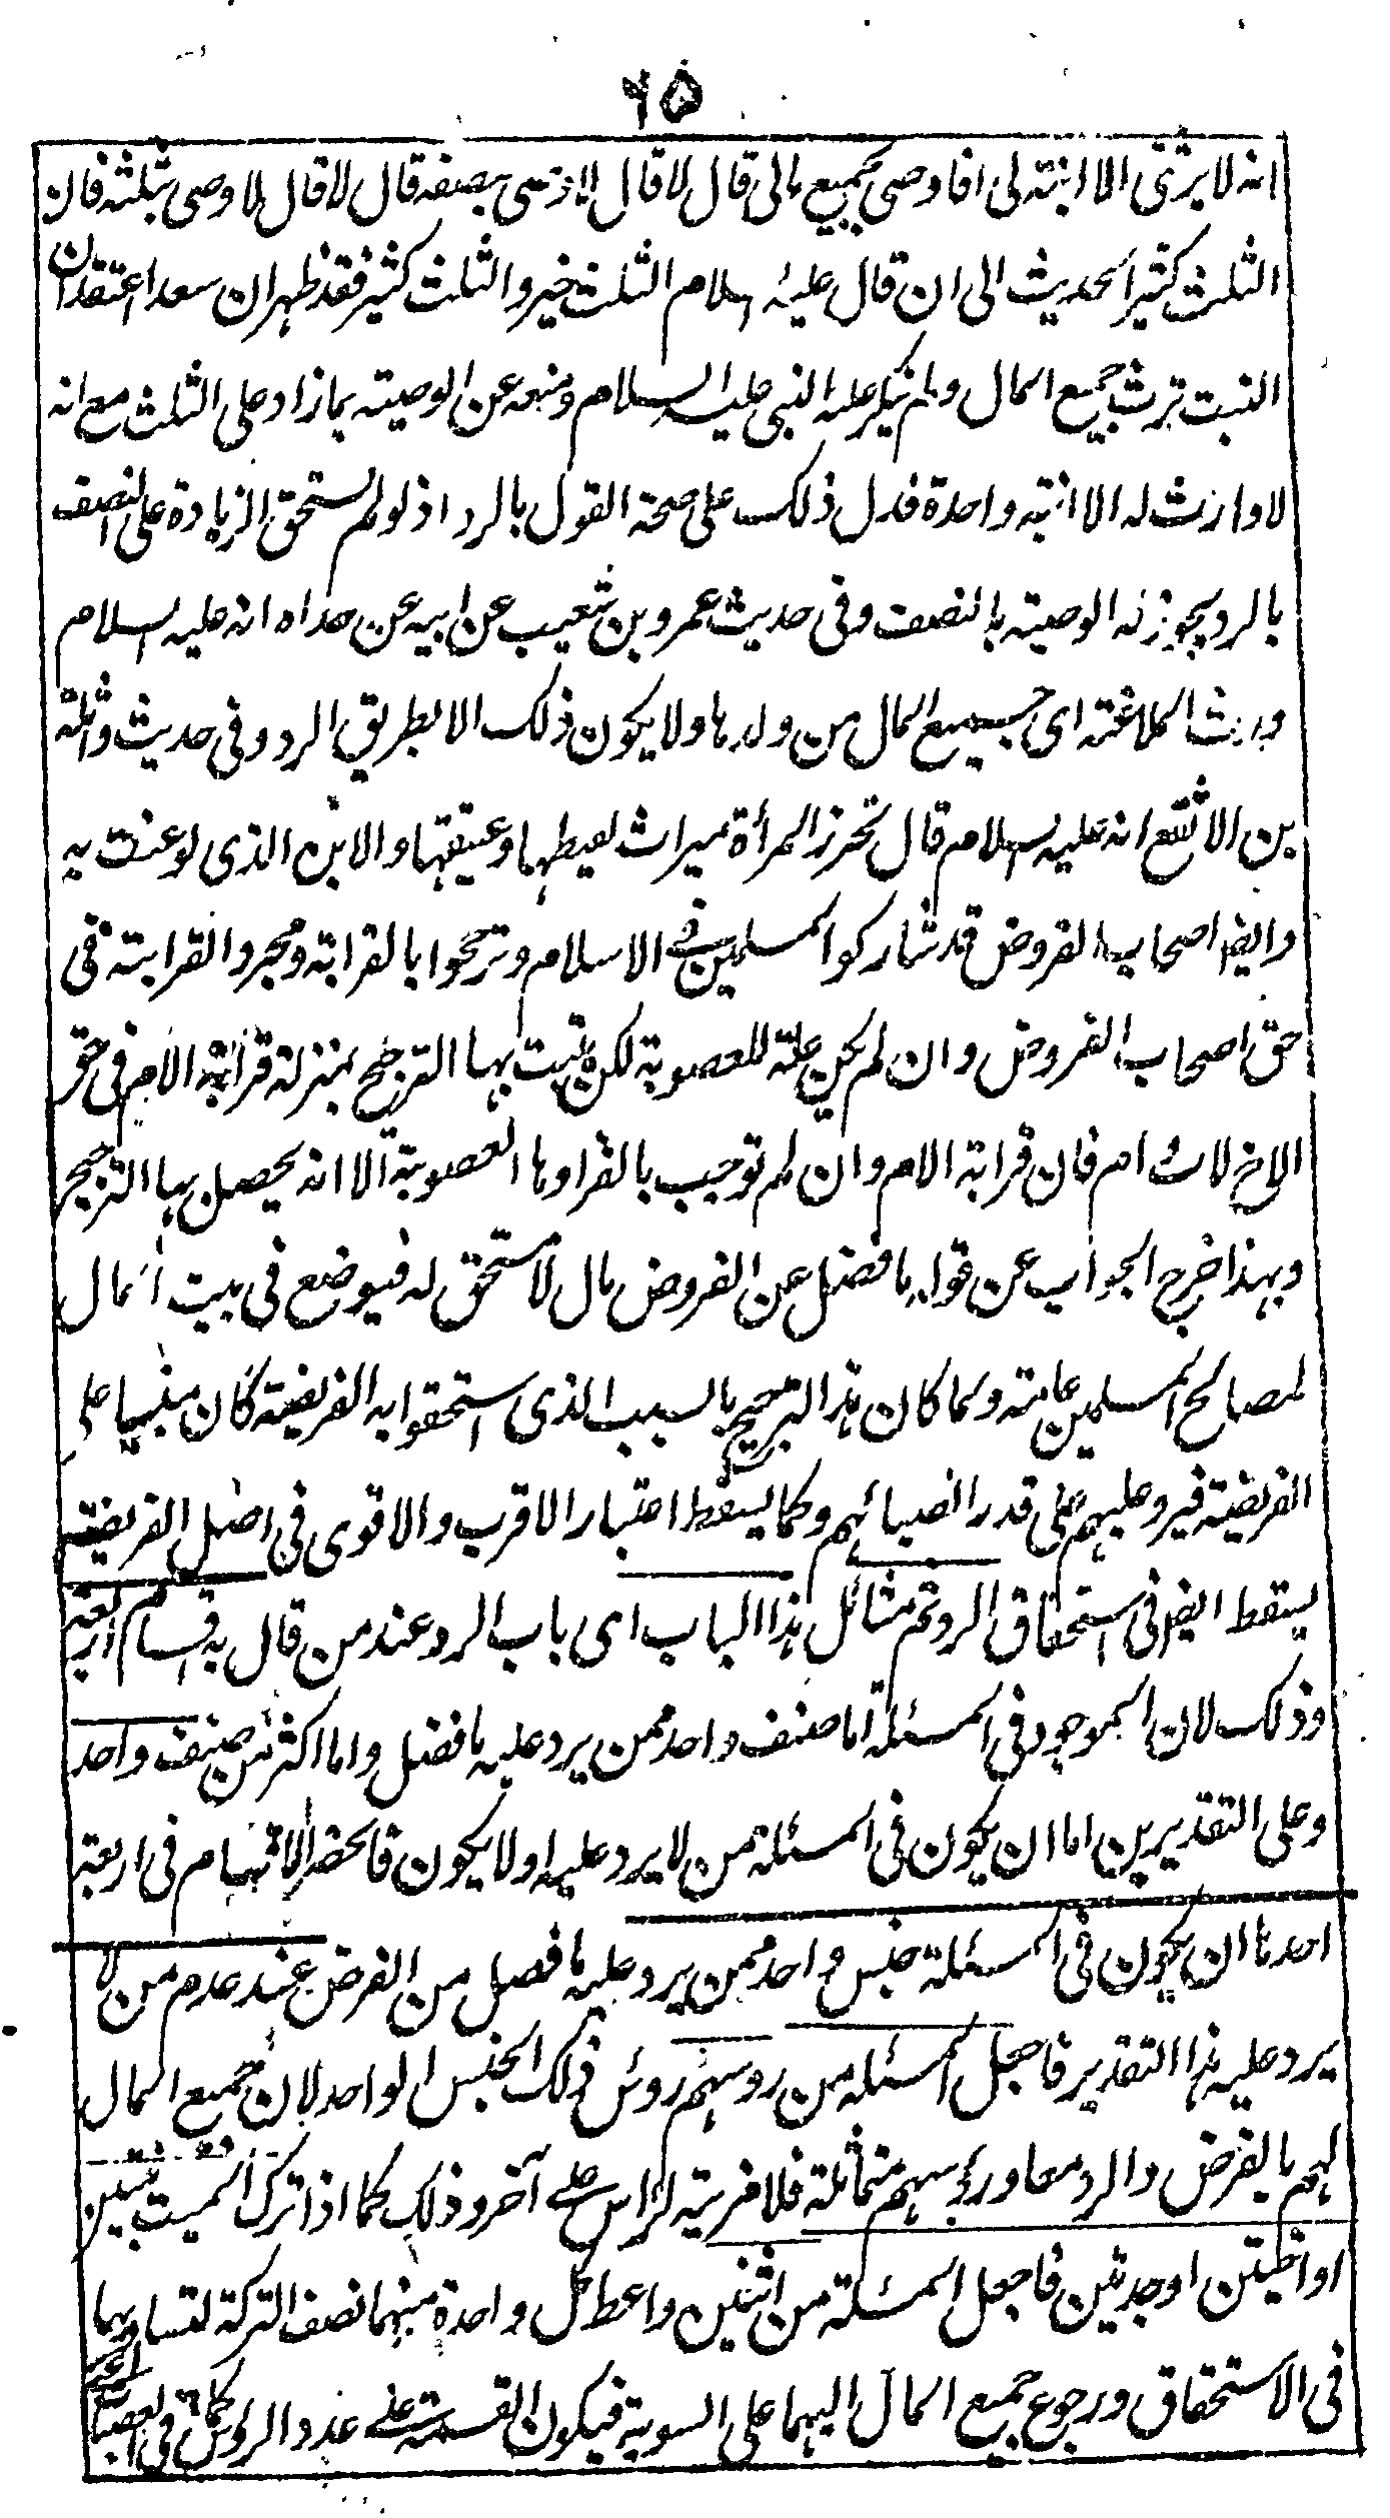 ٦٥
انه لا يرثنى الا ابنة لى افاوصى بجميع مالى قال لا قال افاوصى بنصفه قال لا قال افاوصى بثلثه قال
الثلث كثير الحديث الى ان قال عليه السلام الثلث خير والثلث كثير فقد ظهر ان سعدا اعتقد ان
البنت ترث جميع المال ولم ينكر عليه النبى عليه السلام ومنعه عن الوصية بما زاد على الثلث مع انه
لا وارث له الا ابنة واحدة فدل ذلك على صحة القول بالرد اذ لو لم تستحق الزيادة على النصف
بالرد يجوز له الوصية بالنصف وفى حديث عمرو بن شعيب عن ابيه عن جده انه عليه السلام
ورث الملاعنة اى جميع المال من ولدها ولا يكون ذلك الا بطريق الرد وفى حديث واثلة
بن الاسقع انه عليه السلام قال تحرز المرأة ميراث لقيطها وعتيقها والابن الذى لوعنت به
وايضا اصحاب الفروض قد شاركوا المسلمين فى الاسلام وترجحوا بالقرابة ومجرد القرابة فى
حق اصحاب الفروض وان لم يكن علة للعصوبة لكن يثبت بها الترجيح بمنزلة قرابة الام فى حق
الاخ لاب وام فان قرابة الام وان لم توجب بانفرادها العصوبة الا انه يحصل بها الترجيح
وبهذا خرج الجواب عن قوله ما فضل عن الفروض مال لا مستحق له فيوضع فى بيت المال
لمصالح المسلمين عامة ولما كان هذا الترجيح بالسبب الذى استحقوا به الفريضة كان مبنيا على
الفريضة فيرد عليهم على قدر انصبائهم وكما يسقط اعتبار الاقرب والاقوى فى اصل الفريضة
يسقط ايضا فى استحقاق الرد ثم مسائل هذا الباب اى باب الرد عند من قال به اقسام اربعة
وذلك لان الموجود فى المسئلة اما صنف واحد ممن يرد عليه ما فضل واما اكثر من صنف واحد
وعلى التقديرين اما ان يكون فى المسئلة من لا يرد عليه او لا يكون فانحصر الاقسام فى اربعة
احدها ان يكون فى المسئلة جنس واحد ممن يرد عليه ما فضل من الفرض عند عدم من لا
يرد عليه هذا التقدير فاجعل المسئلة من روسهم روس ذلك الجنس الواحد لان جميع المال
لهم بالفرض والرد معا ورؤسهم متماثلة فلا مزية لراس على آخر وذلك كما اذا ترك الميت بنتين
او اختين او جدتين فاجعل المسئلة من اثنين واعط كل واحدة منهما نصف التركة لتساويهما
فى الاستحقاق ورجوع جميع المال اليهما على السوية فيكون القسمة على عدد الرؤس كما فى العصبات